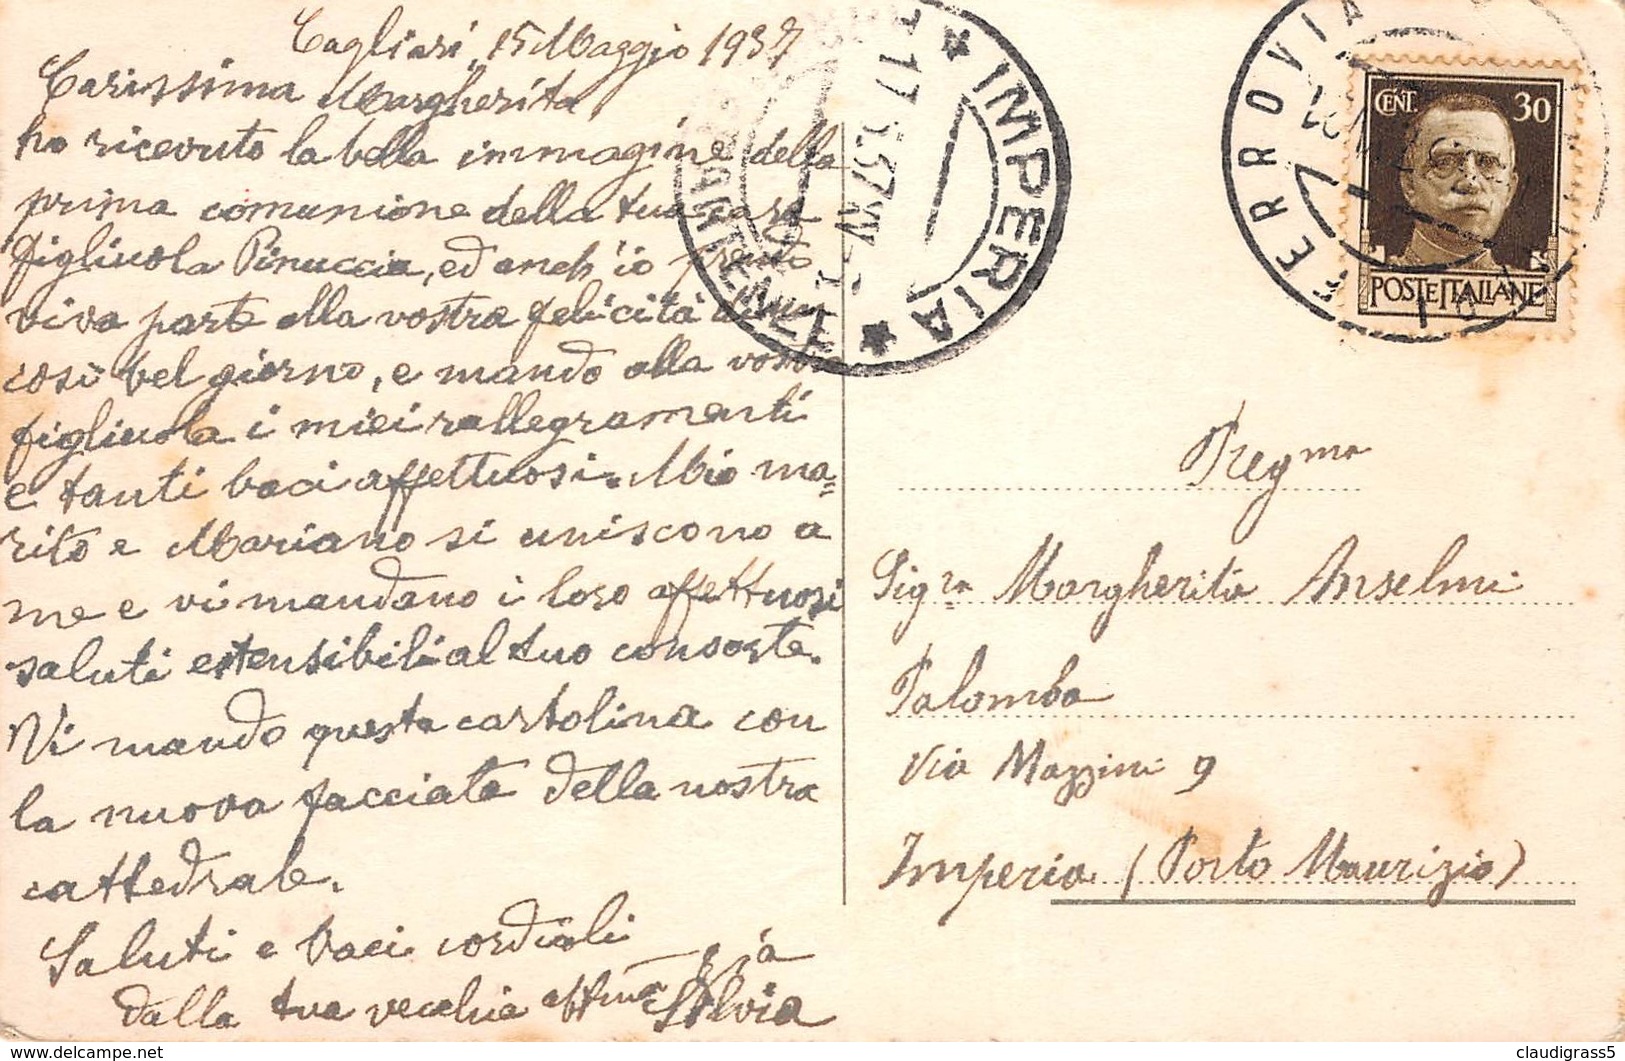 Cagliari, 15 Maggio 1937
Carissima Margherita
ho ricevuto la bella immagine della
prima comunione della tua cara
figliuola Pinuccia, ed anch'io prendo
viva parte alla vostra felicità di un
così bel giorno, e mando alla vostra
figliuola i miei rallegramenti
e tanti baci affettuosi. Mio ma=
rito e Mariano si uniscono a
me e vi mandano i loro affettuosi
saluti estensibili al tuo consorte.
Vi mando questa cartolina con
la nuova facciata della nostra
cattedrale.
Saluti e baci cordiali
dalla tua vecchia aff.ma zia
Silvia
IMPERIA
17.5.37.XV
FERROVIA
CENT. 30
POSTE ITALIANE
Preg.ma
Sig.ra Margherita Anselmi
Palomba
Via Mazzini 9
Imperia (Porto Maurizio)
claudigrass5